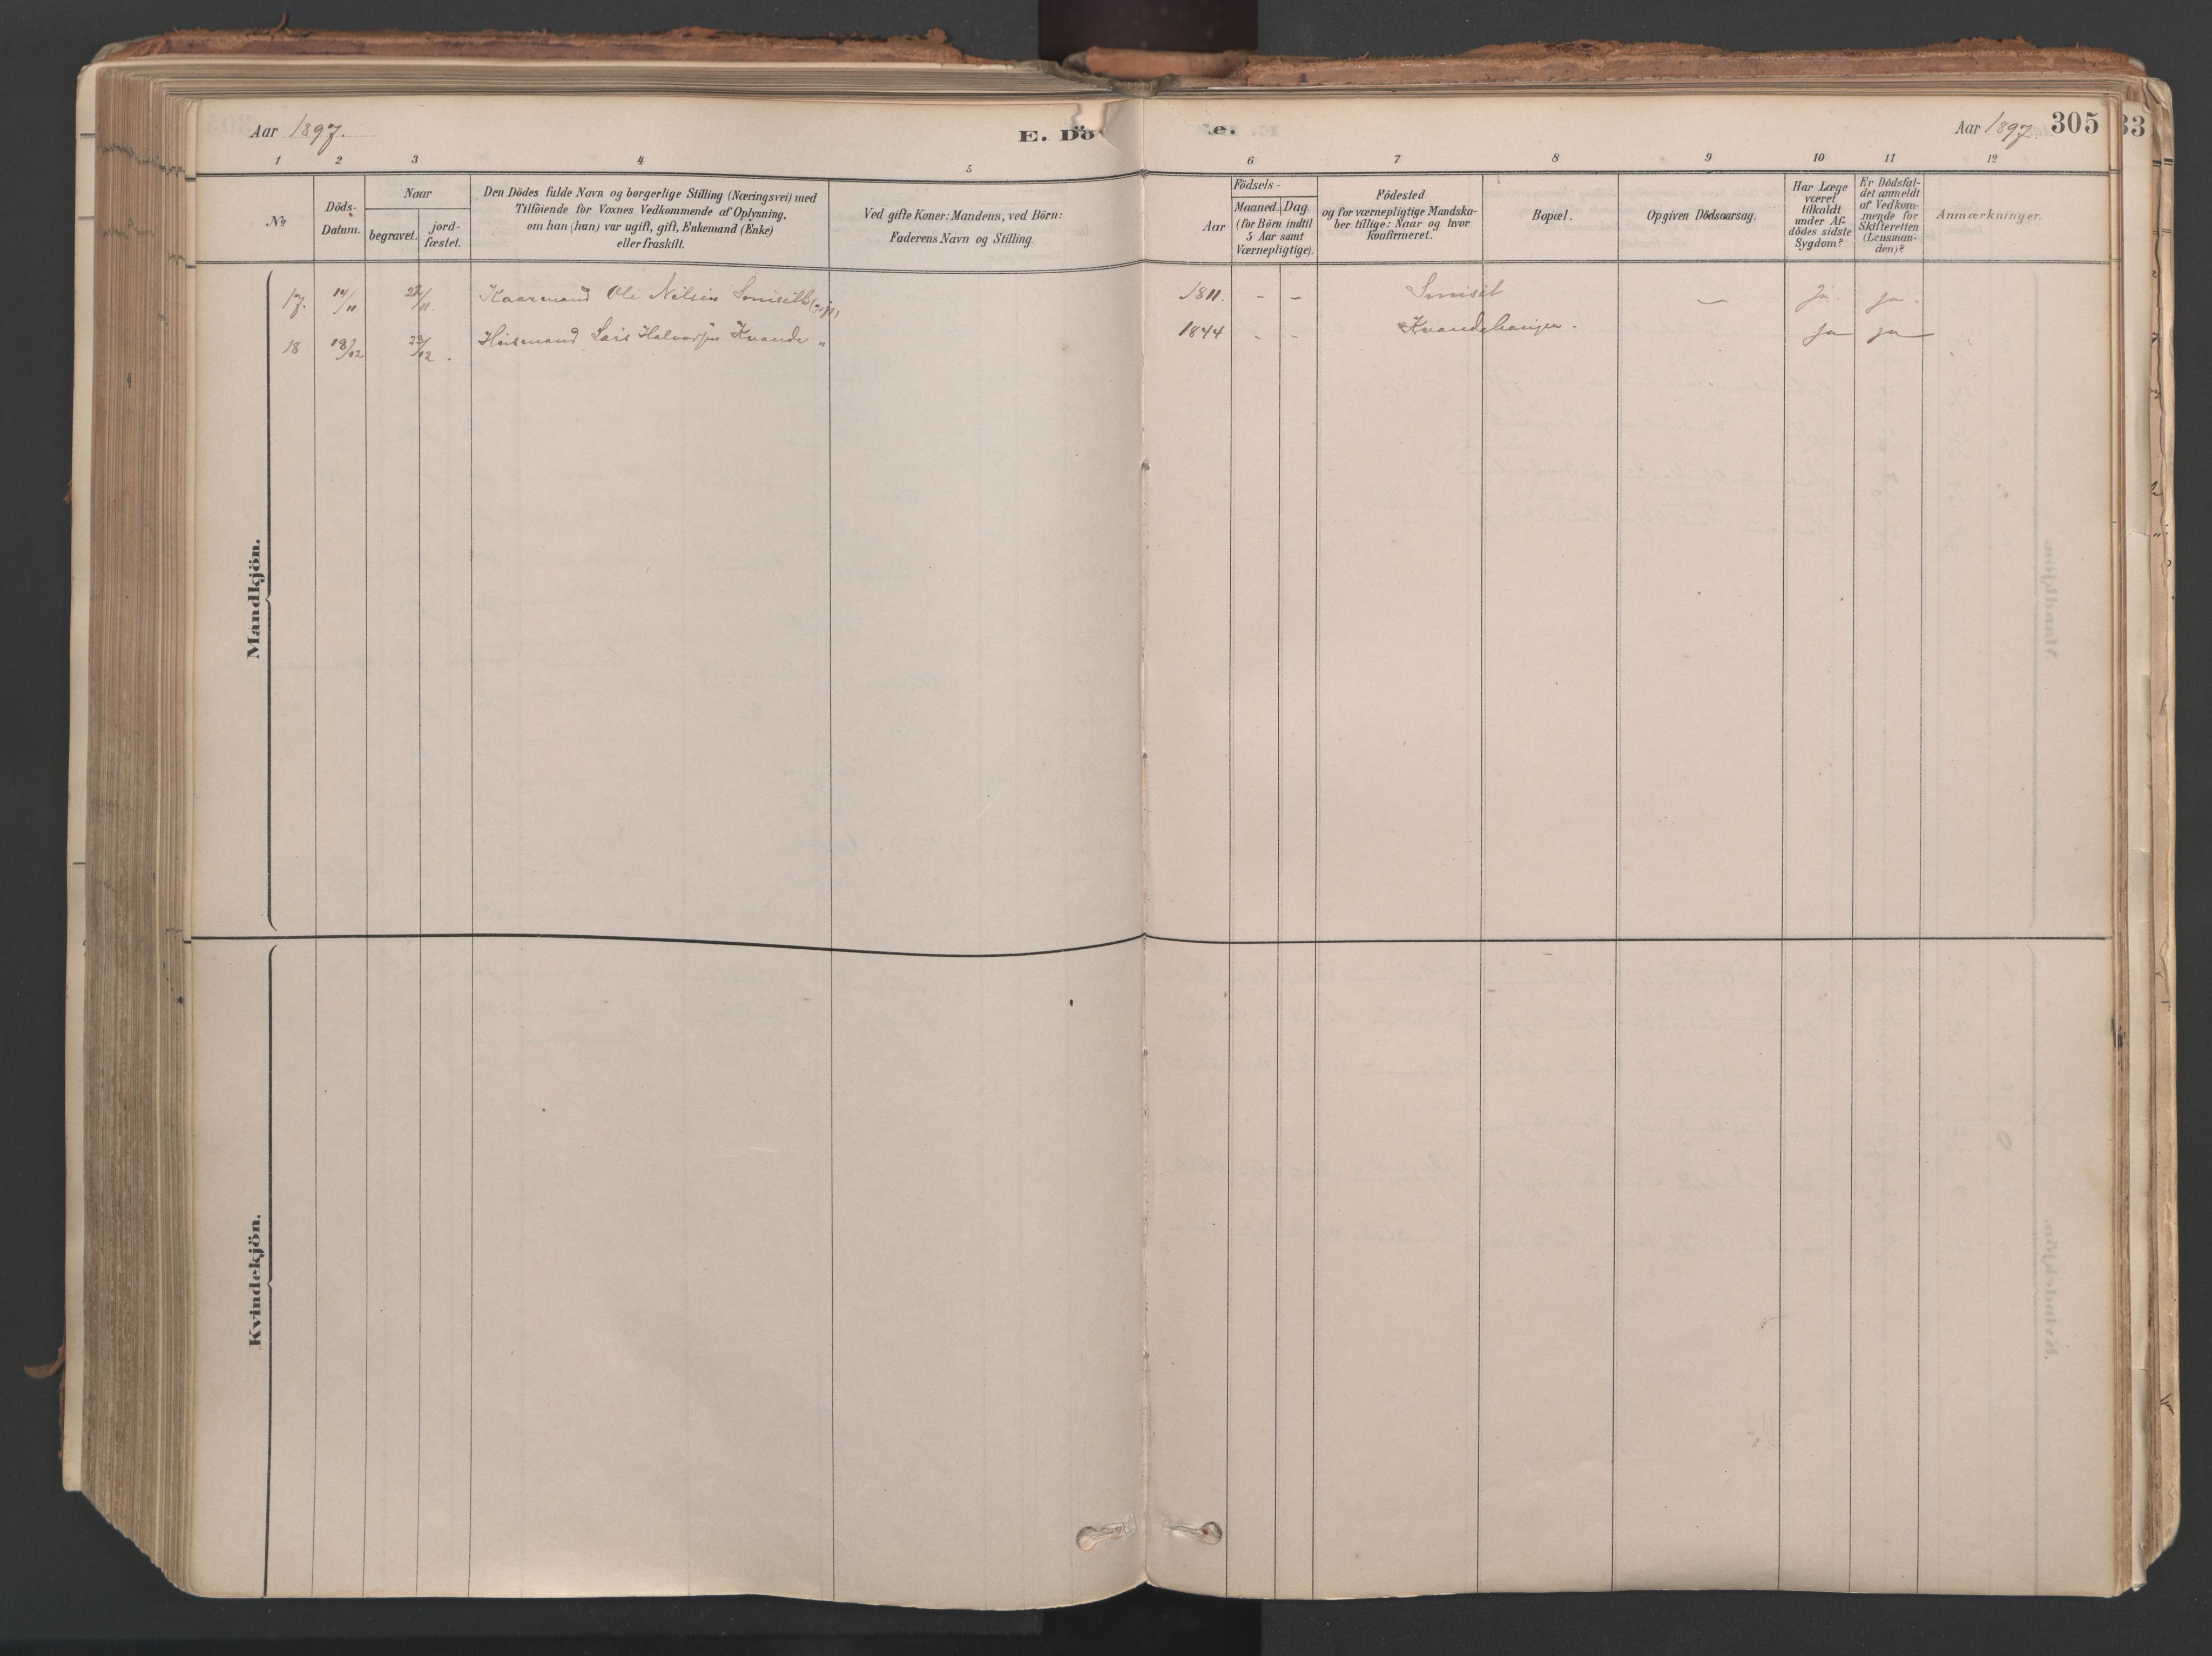 Aar 1897.
E. Dö
e.
Aar 1897. 305
33
1 2 3 4 5 6 7 8 9 10 11 12
No
Döds-
Datum.
Naar
begravet.
jord-
fæstet.
Den Dödes fulde Navn og borgerlige Stilling (Næringsvei) med
Tilföiende for Voxnes Vedkommende af Oplysning,
om han (hun) var ugift, gift, Enkemand (Enke)
eller fraskilt.
Ved gifte Koner: Mandens, ved Börn:
Faderens Navn og Stilling.
Födsels-
Aar
Maaned. Dag.
(for Börn indtil
5 Aar samt
Værnepligtige).
Födested
og for værnepligtige Mandska-
ber tillige: Naar og hvor
konfirmeret.
Bopæl.
Opgiven Dödsaarsag.
Har Læge
været
tilkaldt
under Af-
dödes sidste
Sygdom?
Er Dödsfal-
det anmeldt
af Vedkom-
mende for
Skifteretten
(Lensman-
den)?
Anmærkninger.
Mandkjön.
17. 14/11 22/11. Kaarmand Ole Nilsen 1811. - - — Ja. ja.
18 18/12 22/12. Husmand Lars Halvorsen Kvande " 1844 - - Kvandehaugen. ja ja
Kvindekjön.